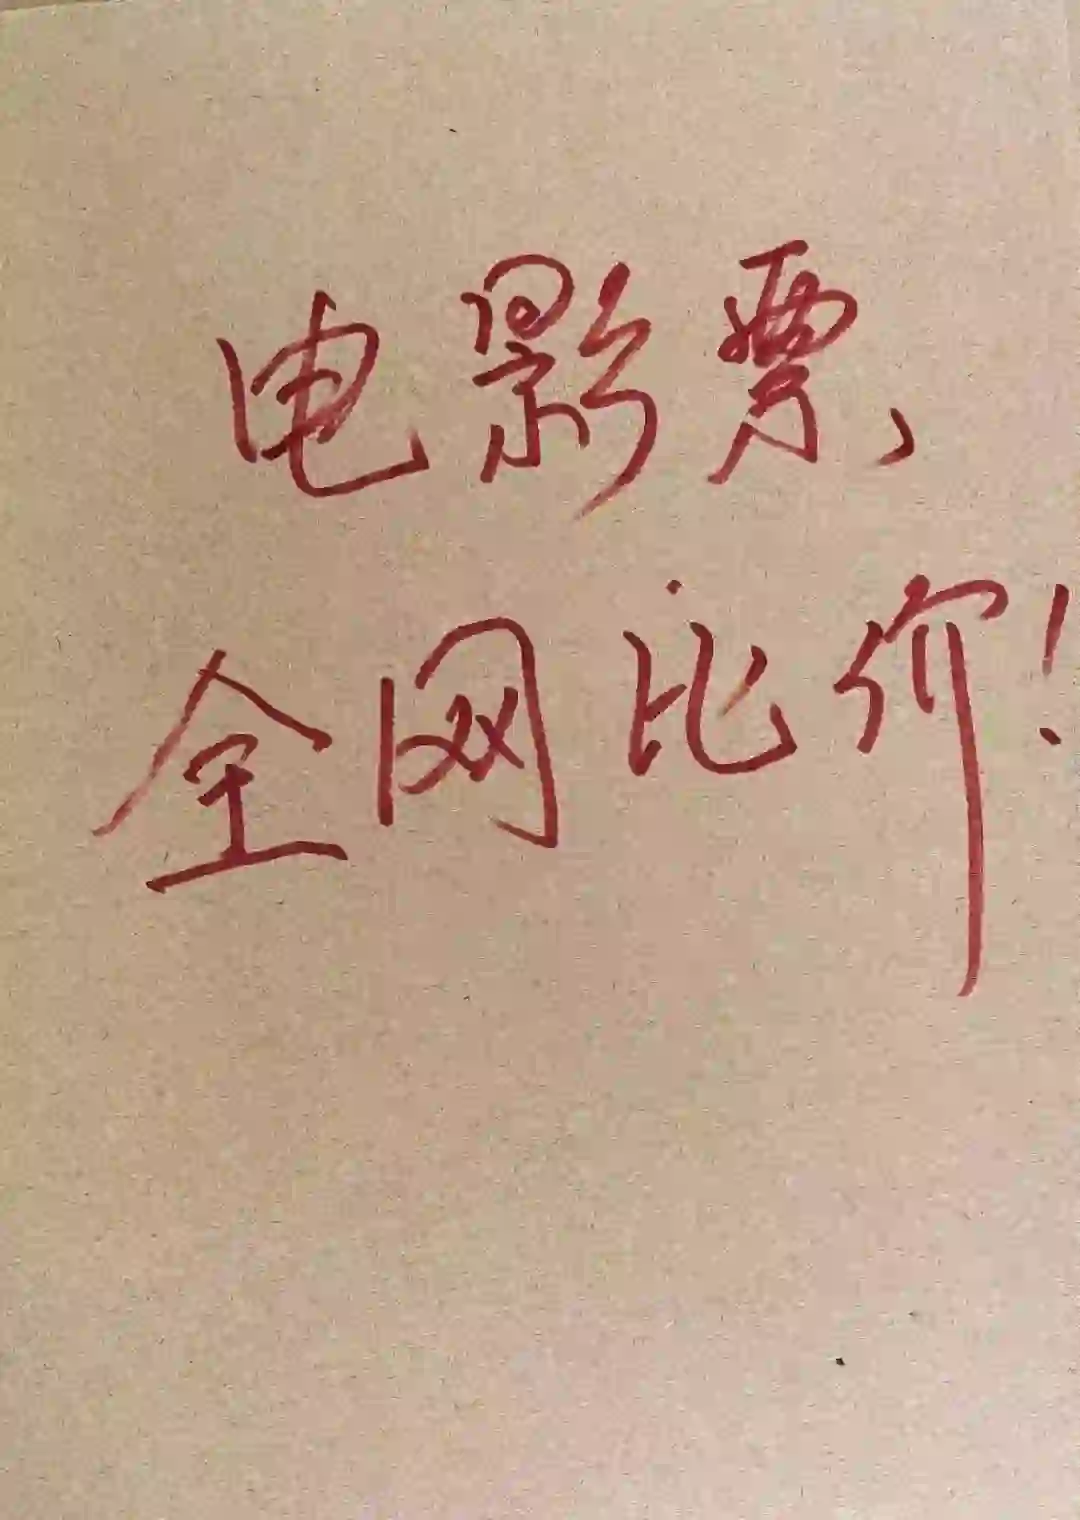 电影票,
全网比价!